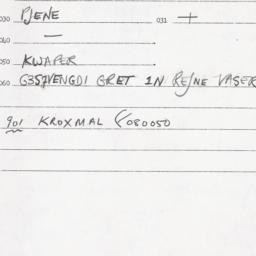 030 PJENE 031 +
040 —
050 KWAPER
060 G3SIVENGDI GRET IN REJNE VASER
901 KROXMAL (080050